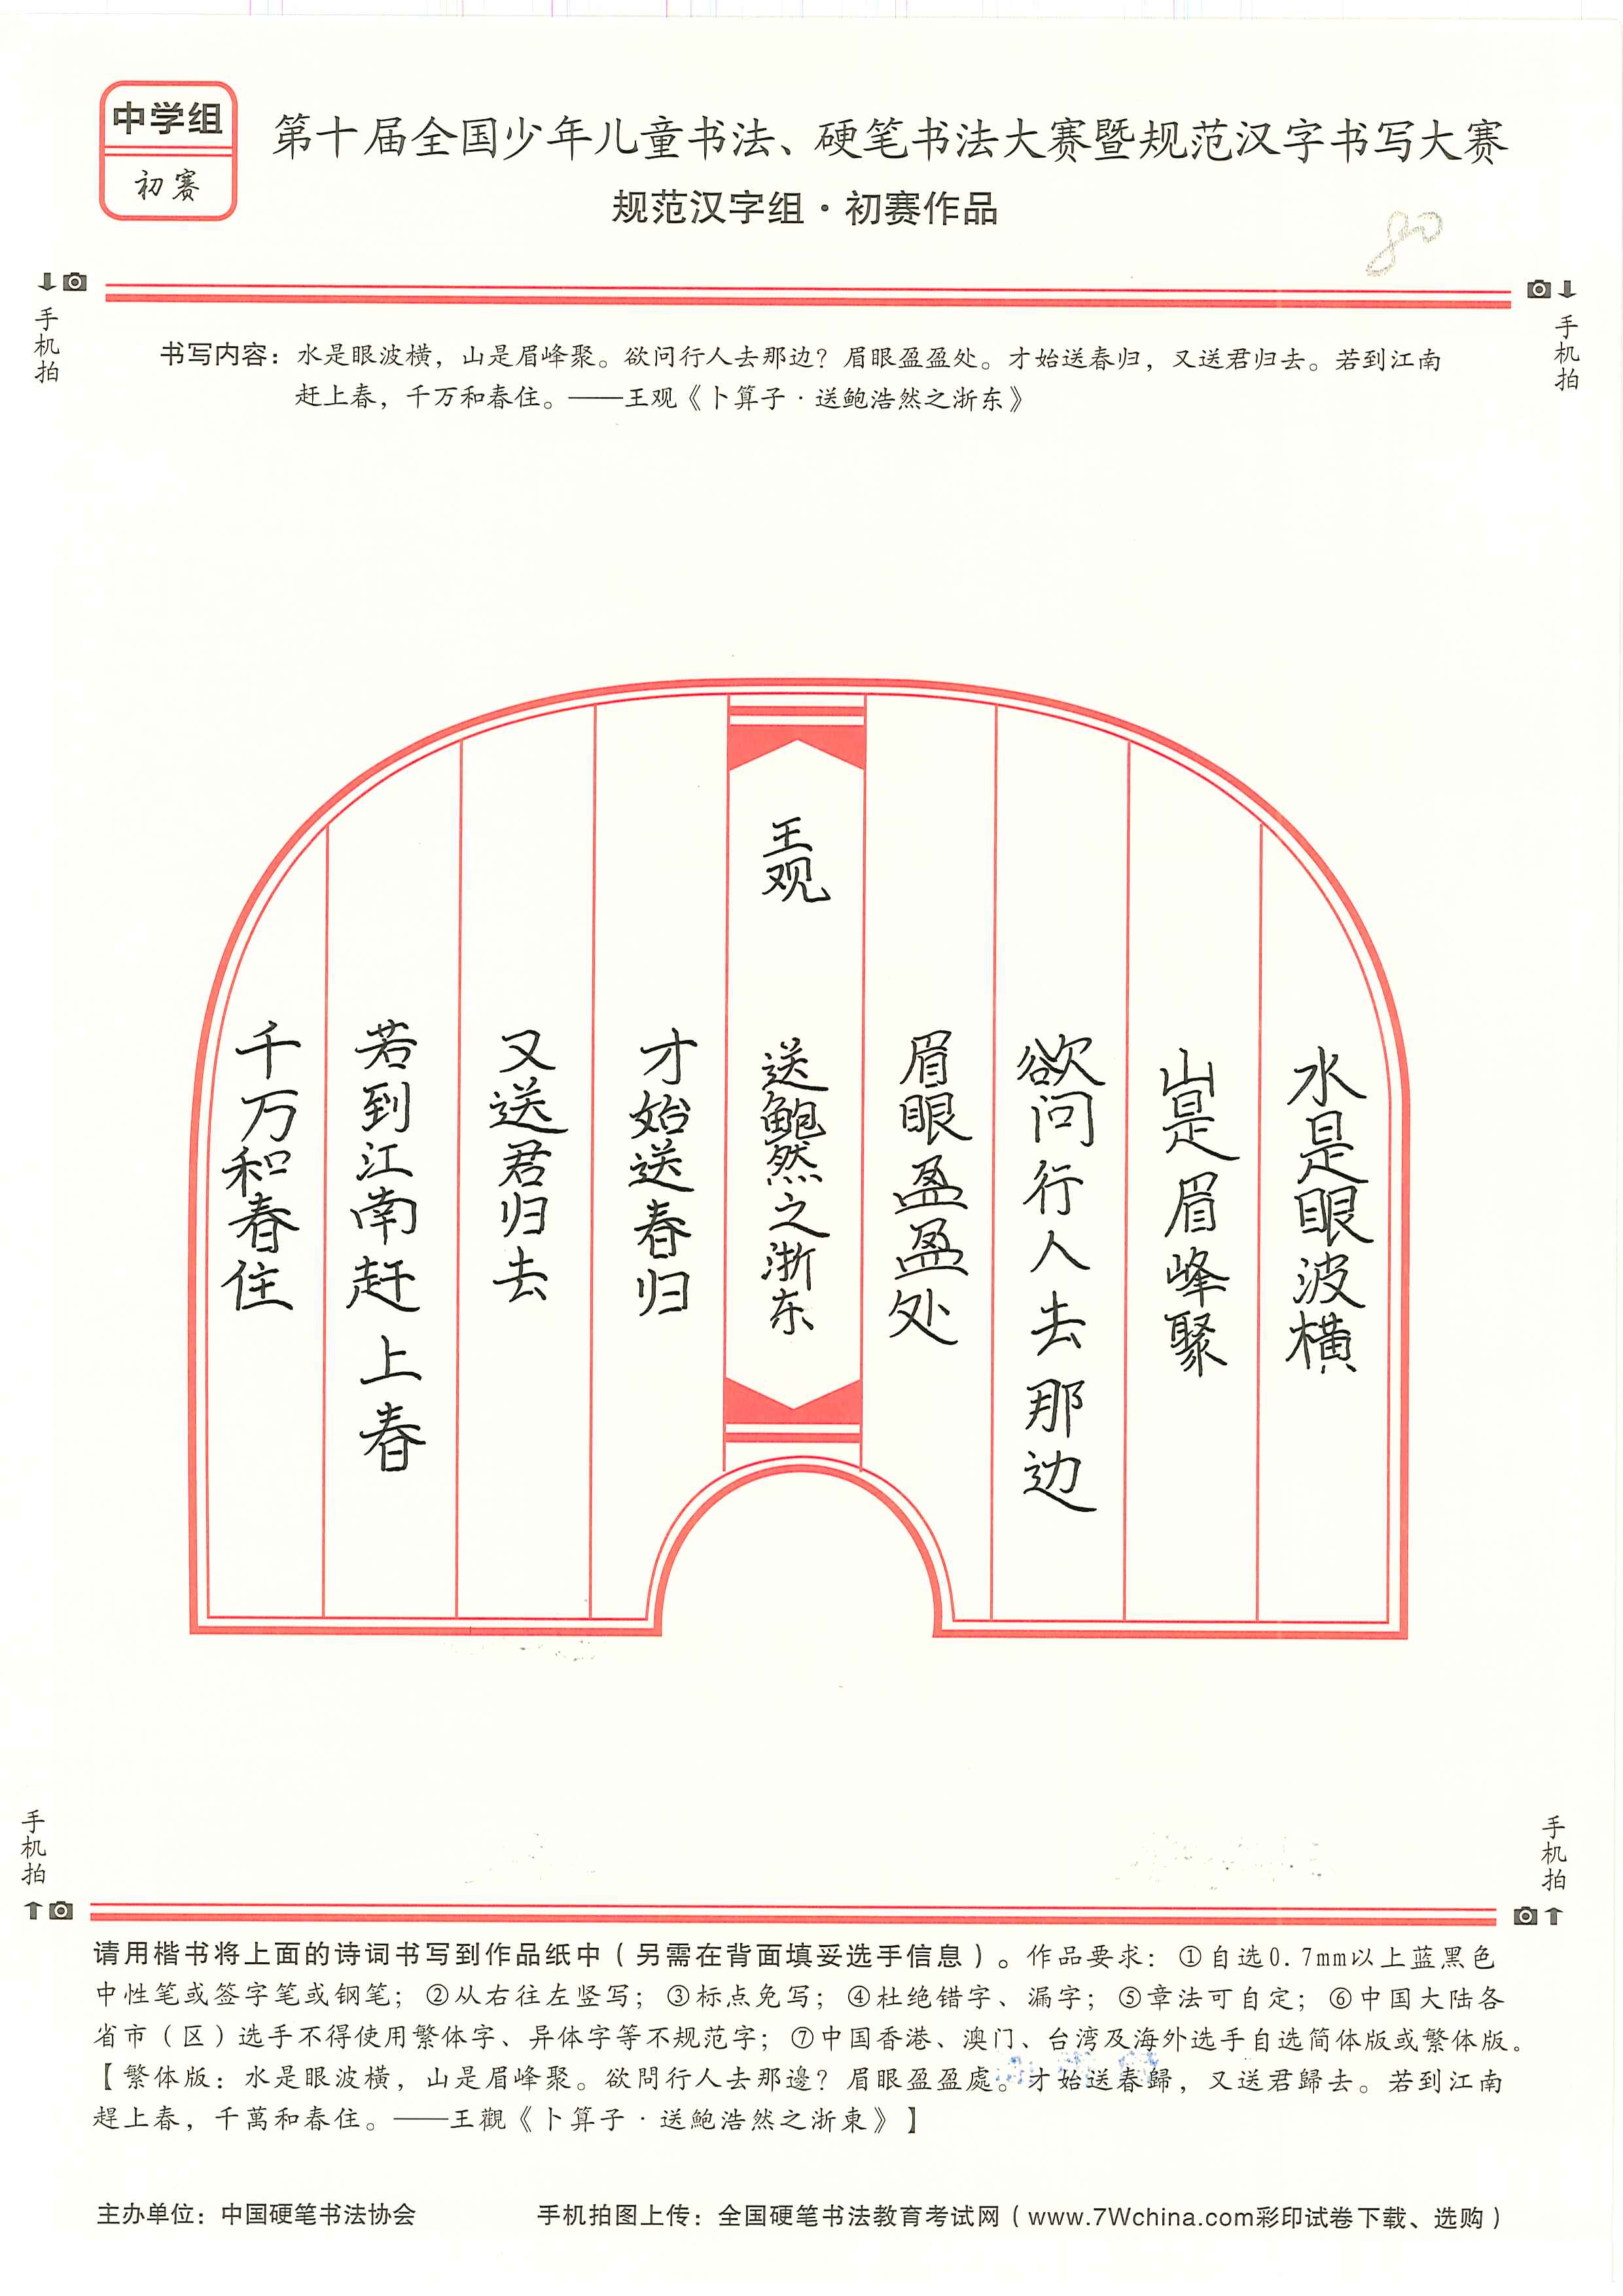 中学组
初赛
第十届全国少年儿童书法、硬笔书法大赛暨规范汉字书写大赛
规范汉字组·初赛作品
80
手机拍
手机拍
书写内容：水是眼波横，山是眉峰聚。欲问行人去那边？眉眼盈盈处。才始送春归，又送君归去。若到江南
赶上春，千万和春住。——王观《卜算子·送鲍浩然之浙东》
水是眼波横
山是眉峰聚
欲问行人去那边
眉眼盈盈处
王观 送鲍然之浙东
才始送春归
又送君归去
若到江南赶上春
千万和春住
手机拍
手机拍
请用楷书将上面的诗词书写到作品纸中（另需在背面填妥选手信息）。作品要求：①自选0.7mm以上蓝黑色
中性笔或签字笔或钢笔；②从右往左竖写；③标点免写；④杜绝错字、漏字；⑤章法可自定；⑥中国大陆各
省市（区）选手不得使用繁体字、异体字等不规范字；⑦中国香港、澳门、台湾及海外选手自选简体版或繁体版。
【繁体版：水是眼波横，山是眉峰聚。欲問行人去那邊？眉眼盈盈處。才始送春歸，又送君歸去。若到江南
趕上春，千萬和春住。——王觀《卜算子·送鮑浩然之浙東》】
主办单位：中国硬笔书法协会
手机拍图上传：全国硬笔书法教育考试网（www.7Wchina.com彩印试卷下载、选购）